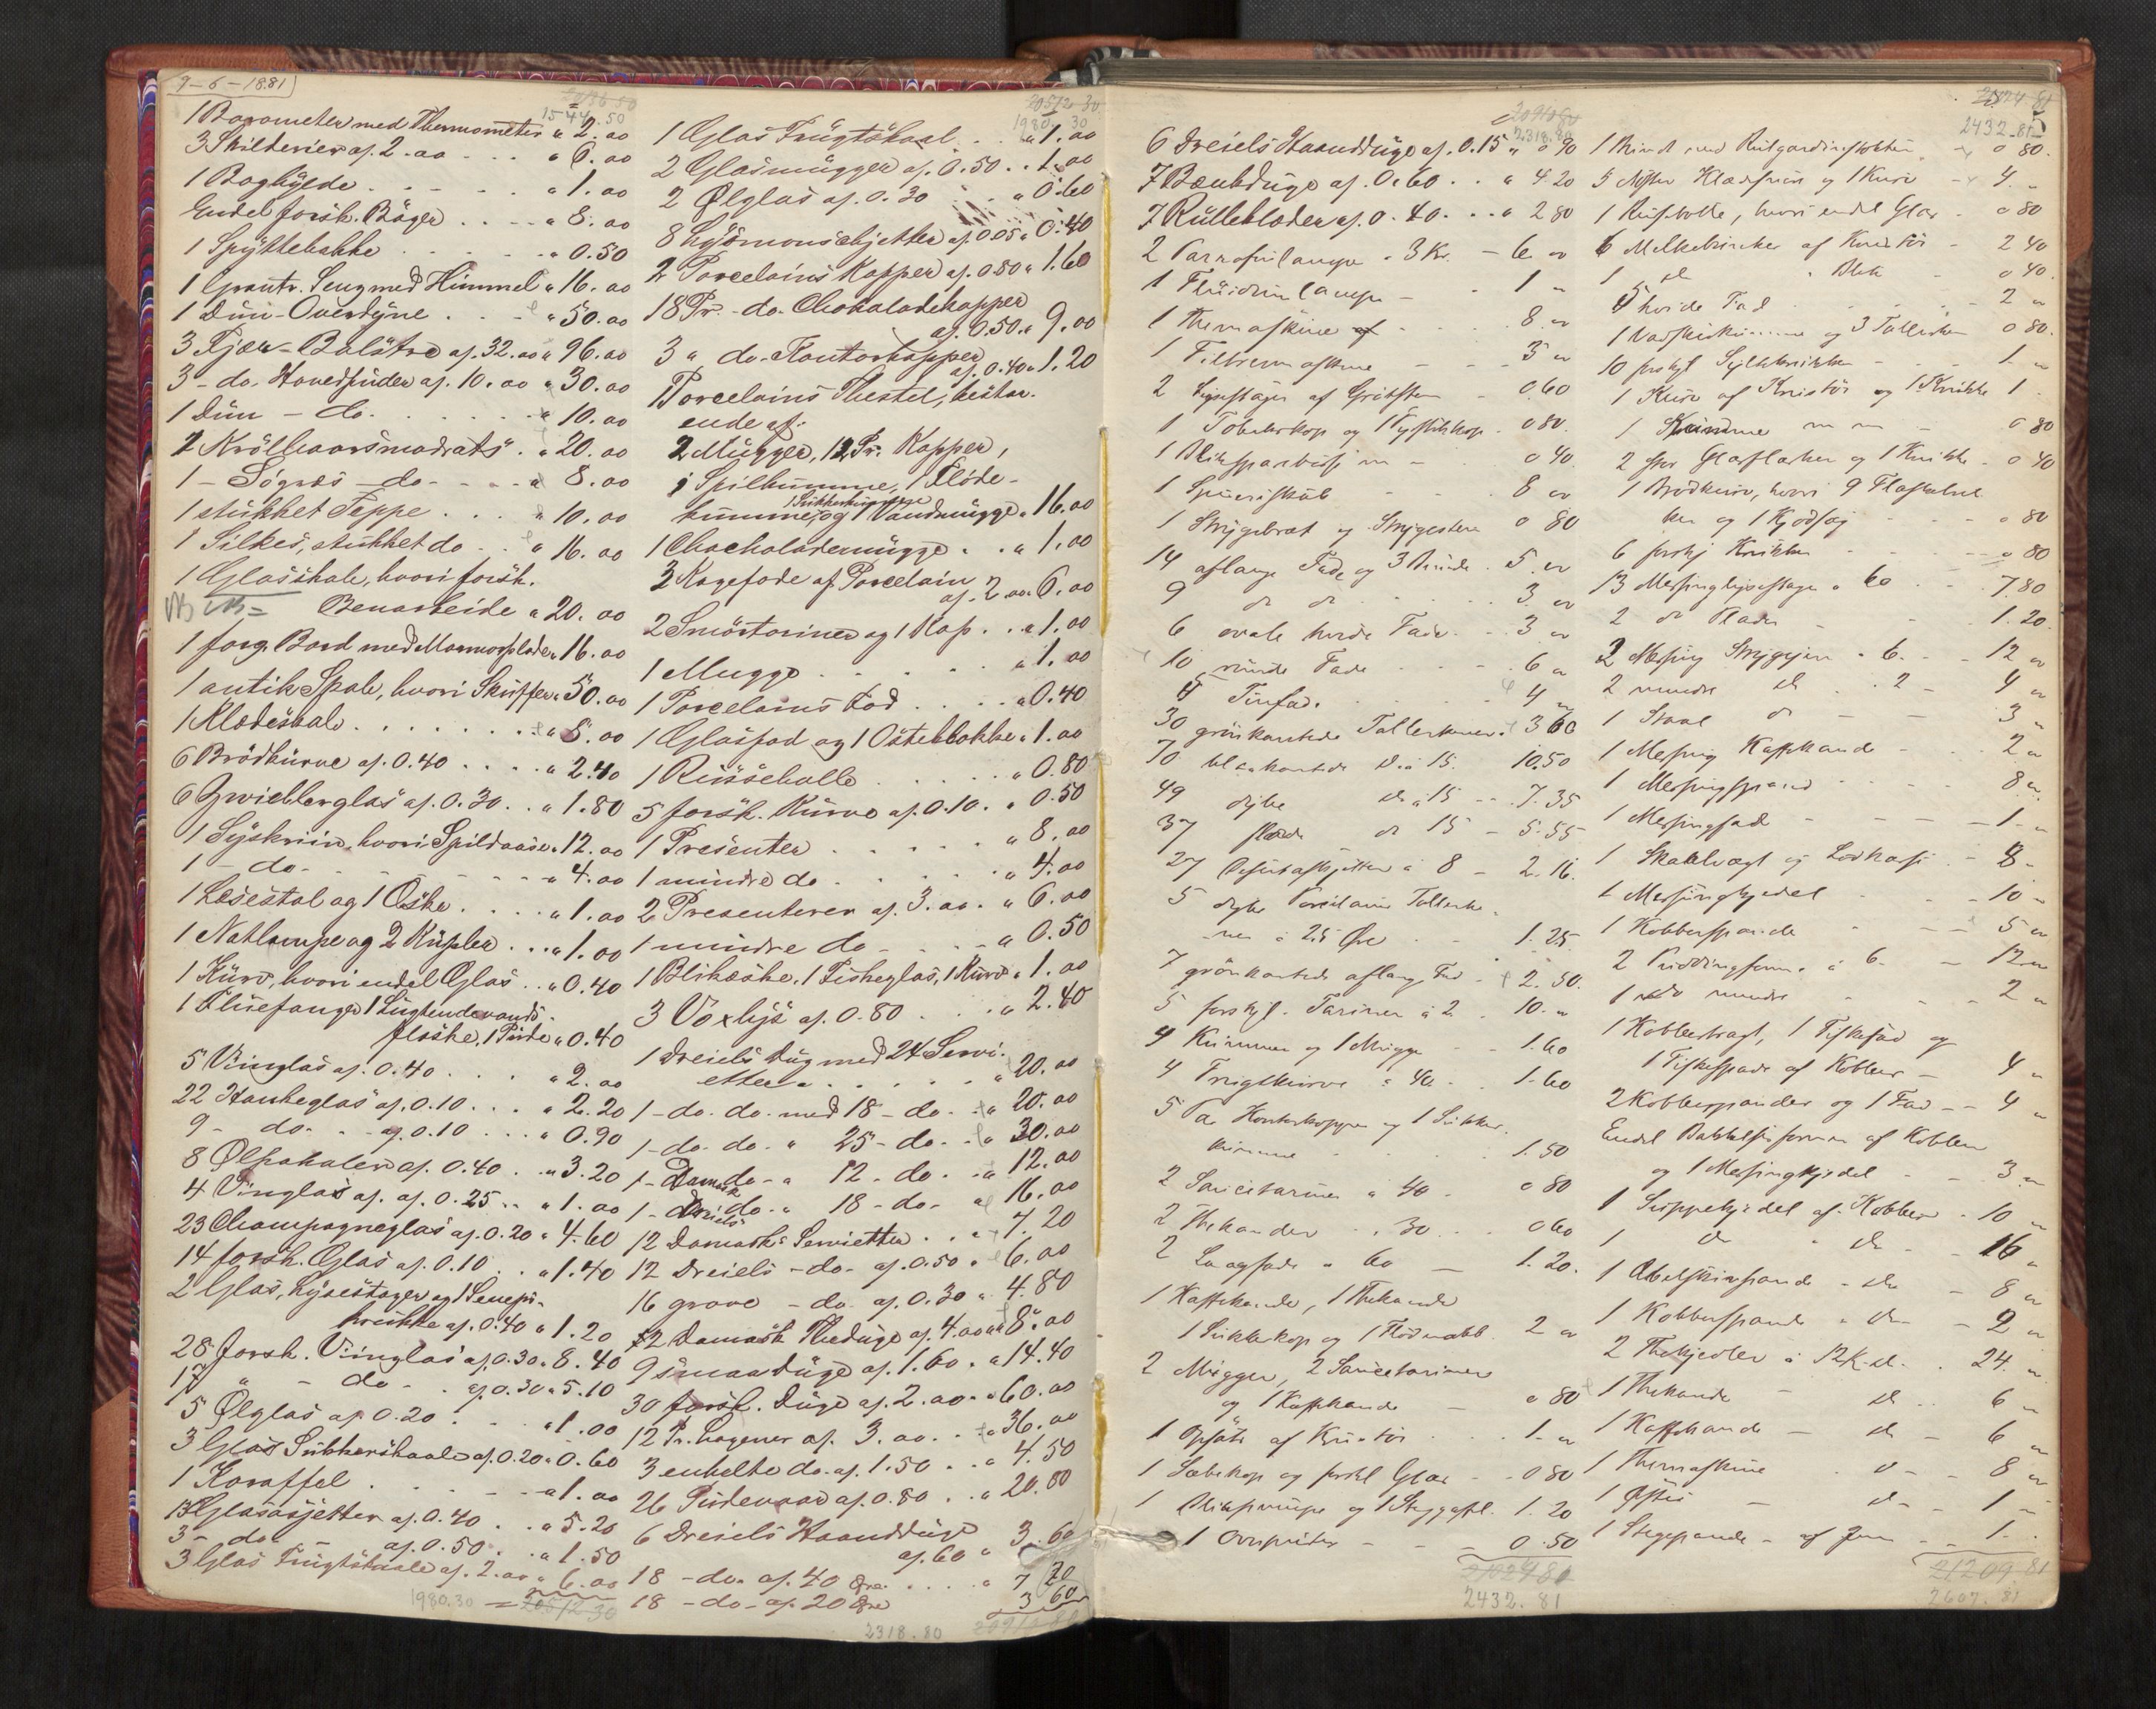 9-6-1881
1544.50
1 Barometer med Thermometer " 2.00
3 Skilderier af. 2.00 " 6.00
1 Boghylde " 1.00
Endel forsk. Böger " 8.00
1 Spyttebakke " 0.50
1 Grantr. Seng med Himmel " 16.00
1 Dün-Overdyne " 50.00
3 Fjær-Bolstre af. 32.00 " 96.00
3 - do. Hovedpuder af. 10.00 " 30.00
1 Dün - do. " 10.00
1 Kröllhaarsmadrats " 20.00
1 - Sögræs - do - " 8.00
1 stükket Teppe " 10.00
1 Silkes, stükket do " 16.00
1 Glasskab, hvori forsk.
Benarbeide " 20.00
1 forg. Bord med Marmorplade " 16.00
1 antik Skab, hvori Skuffer " 50.00
1 Klædeskab " 8.00
6 Brödkurve af. 0.40 " 2.40
6 Zwieblerglas af. 0.30 " 1.80
1 Syskriin, hvori Spildaase " 12.00
1 - do - " 4.00
1 Læsestol og 1 Æske " 1.00
1 Natlampe og 2 Kupler " 1.00
1 Kürv, hvori endel Glas " 0.40
1 Flüefanger 1 Lugtendevands-
flaske, 1 Pude " 0.40
5 Vinglas af. 0.40 " 2.00
22 Hankeglas af. 0.10 " 2.20
9 - do - af. 0.10 " 0.90
8 Ølpokaler af. 0.40 " 3.20
4 Vinglas af. af. 0.25 " 1.00
23 Champagneglas af. 0.20 " 4.60
14 forsk. Glas af. 0.10 " 1.40
2 Glas, Lysestager og 1 Seneps-
krukke af. 0.40 " 1.20
28 forsk. Vinglas af. 0.30 " 8.40
17 " - do - af. 0.30 " 5.10
5 Ølglas af. 0.20 " 1.00
3 Glas Sukkerskaale af. 0.20 " 0.60
1 Karaffel " 1.00
13 Glasasjetter af. 0.40 " 5.20
3 - do - af. 0.50 " 1.50
3 Glas Frügtskaale af. 2.00 " 6.00
1980.30 = 20512 30
20512 30
1980. 30
1 Glas Frügtskaal " 1.00
2 Glasmugger af. 0.50 " 1.00
2 Ølglas af. 0.30 " 0.60
8 Lysmanschjetter af. 0.05 " 0.40
2 Porcelains Kopper af. 0.80 " 1.60
18 Pr. - do. Chokoladekopper
af. 0.50 " 9.00
3 " do. Kantorkopper
af. 0.40 " 1.20
1 Porcelains Thestel, bestaa-
ende af:
2 Mugger, 12 Pr. Kopper,
1 Spilkumme, 1 Fløde-
1 Sukkerkumme
kumme, og 1 Vandmugge " 16.00
1 Chocholademugge " 1.00
3 Kagefade af Porcelain
af. 2.00 " 6.00
2 Smörtariner og 1 Kop " 1.00
1 Mugge " 1.00
1 Porcelains Fad " 0.40
1 Glasfad og 1 Östeklokke " 1.00
1 Ruskebolle " 0.80
5 forsk. Kurve af. 0.10 " 0.50
1 Presenter " 8.00
1 mindre do " 4.00
2 Presenterer af. 3.00 " 6.00
1 mindre do - " 0.50
1 Blikæske, 1 Fiskeglas, 1 Kurv " 1.00
3 Voxlys af. 0.80 " 2.40
1 Dreiels Düg med 24 Servi-
etter " 20.00
1 - do. do. med 18 - do. " 20.00
1 - do. do. " 25 - do. " 30.00
1 - Damask do - " 12 - do. " 12.00
1 - Dreiels do. " 18 - do - " 16.00
12 Damask Servietter " 7.20
12 Dreiels - do - af. 0.50 " 6.00
16 grove - do. af. 0.30 " 4.80
2 Damask Theduge af. 4.00 " 8.00
9 smaa Düge af. 1.60 " 14.40
30 forsk. Düge af. 2.00 " 60.00
12 Pr. Lagener af. 3.00 " 36.00
3 enkelte do. af. 1.50 " 4.50
26 Pudevaar af. 0.80 " 20.80
6 Dreiels Haandduge
af. 60 " 3.60
18 - do. af. 40 Øre " 7 20
18 - do - af. 20 Øre 3 60
2318.80
2318.80
6 Dreiels Haandduge af. 0.15 " 0 90
7 Bænkduge af. 0.60 " 4 20
7 Rülleklæder af. 0.40 " 2 80
2 Parrafinlamper a 3 Kr. - 6 "
1 Fluidumlampe - 1 "
1 Themaskine 8 "
1 Filtreermaskine 3 "
2 Lysestager af 0.60
1 0 80
1 0 40
1 8 "
1 Strygebræt og Strygesteen 0 80
14 aflange Fade og 3 Runde 5 "
9 do do 3 "
6 ovale hvide Fade 3 "
10 runde Fade 6 "
4 Tinfade 4 "
30 grönkantede Tallerkener 3 60
70 blaakantede do a 15 10.50
49 dybe do a 15 7.35
37 flade do 15 - 5.55
27 Desertasjetter a 8 - 2.16
5 dybe Porcelains Tallerke-
ner a 25 Øre 1.25
7 grönkantede aflang Fad 2.50
5 forskjl. Tariner a 2 10. "
4 Kummer og 1 Mugge 1.60
4 Frugtkurve a 40 1.60
5 Par Kontorkopper og 1 Sukker-
kumme 1.50
2 Saucetariner a 40 0 80
2 Thekander " 30 0 60
2 Laagfade a 60 1.20
1 Kaffekande, 1 Thekande
1 Sukkerkop og 1 Flödenæbb 2 "
2 Mugger, 2 Saucetariner
og 1 Kaffekande 0 80
1 Opsats af Kristör 1. "
1 Sæbekop og forskl. Glas 0 80
1 1.20
1 0.50
2432.81
2432.81
1 0 80
5 Nöster Klædesnor og 1 Kurv 4. "
1 , hvori endel Glas 0 80
6 Melkebunker af 2 40
1 do " Blik 0 40
5 hvide Fad 2 "
1 og 3 Tallerken 0 80
10 forskjl. Syltekrukker 1 "
1 Kurv af og 1 Krukke 1
1 0 80
2 stor Glasflasker og 1 Krukke 0 40
1 Brödkurv, hvori 9
og 1 Kjödsag 0 80
6 forskj Krukker 0 80
13 Messinglysestager a 60 7.80
2 do Plader 1.20
2 Messing Strygejern a 6 12 "
2 mindre do " 2 - 4 "
1 Staal do 3 "
1 Messing Kaffekande 2 "
1 Messingspand 8 "
1 Messingfad 1 "
1 Skaalvægt og Lodkasse 8 -
1 Messingkjedel 10 "
1 Kobberspande 5 "
2 Puddingforme a 6 12 "
1 do mindre 2 "
1 Kobbertragt, 1 Fiskefad og
1 Fiskespade af Kobber 4 "
2 Kobberpander og 1 Fad 4 "
Endel Bakkelseformer af Kobber
og 1 Messingkjedel 3 "
1 Suppekjedel af Kobber 10 "
1 do " do 16 "
1 Æbelskivepande - do 8 "
1 Kobberpande " do 2 "
2 Thekjedler a 12 K. do 24 "
1 Thekande do 6 "
1 Kaffekande - do 6 "
1 Themaskine 8 "
1 do 1 "
1 Stegepande - af Jern 1.
21209 81
2607.81